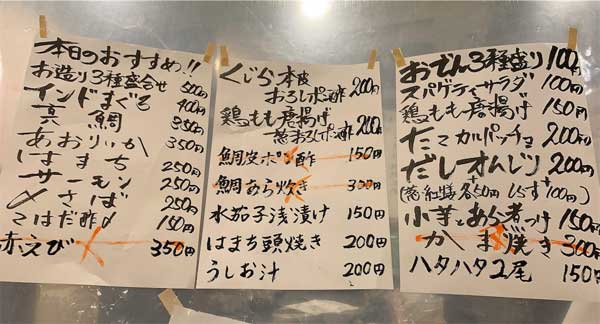 本日のおすすめ!!
お造り3種盛合せ 500円
インドまぐろ 400円
真鯛 350円
あおりいか 350円
はまち 250円
サーモン 250円
〆さば 250円
こはだ酢〆 150円
赤えび 350円
くじら本皮
おろしポン酢 200円
鶏もも唐揚げ
葱おろしポン酢 200円
鯛皮ポン酢 150円
鯛あら炊き 300円
水茄子浅漬け 150円
はまち頭焼き 200円
うしお汁 200円
おでん3種盛り 100円
スパゲティーサラダ 100円
鶏もも唐揚げ 150円
たこカルパッチョ 200円
だしオムレツ 200円
小芋とあら煮つけ 150円
かま焼き 300円
ハタハタ2尾 150円